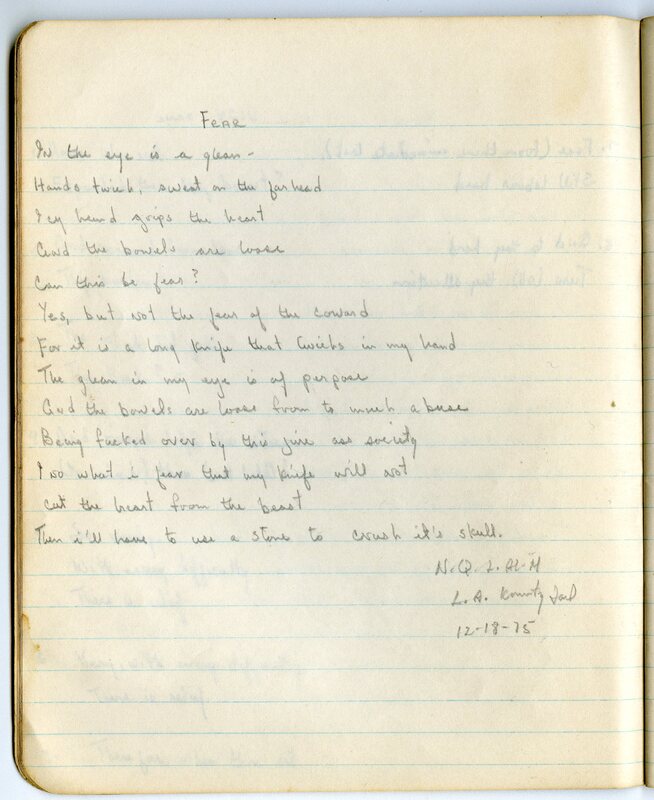 Fear
In the eye is a glean -
Hands twich, sweat on the farhead
Icy hand grips the heart
And the bowels are loose
Can this be fear?
Yes, but not the fear of the coward
For it is a long knife that twichs in my hand
The glean in my eye is of perpose
And the bowels are loose from to much abuse
Being fucked over by this jive ass society
I so what i fear that my knife will not
cut the heart from the beast
Then i'll have to use a stone to crush it's skull.
N.Q.I. Al-M
L.A. Kounty Jail
12-18-75